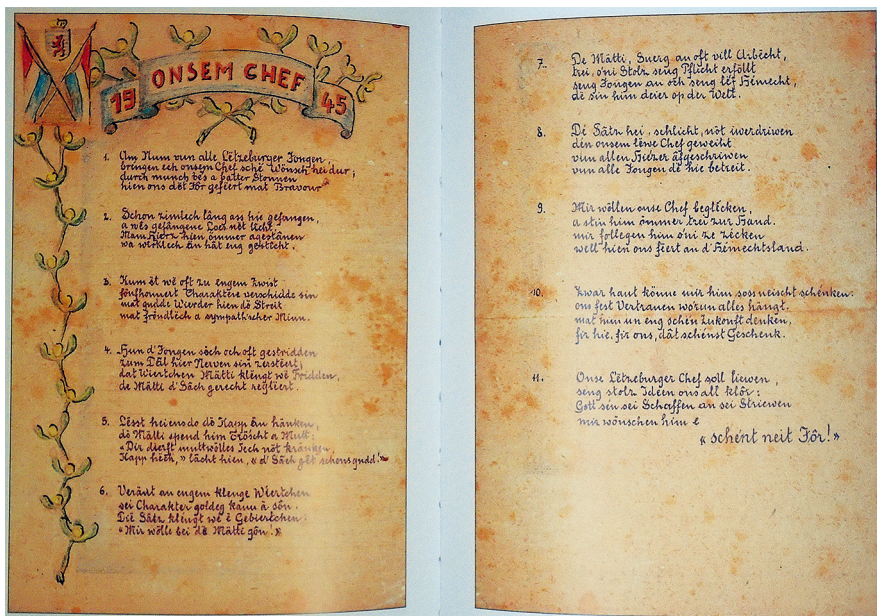 19 ONSEM CHEF 45
1. Am Num vun alle Lëtzeburger Jongen,
brengen ech onsem Chef sche Wonsch hei dur,
durch munch bés a batter Stonnen
hien ons dët Jor geféert mat Bravour
2. Schon zimlech lâng ass hie gefangen,
a wês gefangene Loos nöt licht.
Mam Hierz hien ömmer agestânen
wa wirklech ân hât eng gesticht.
3. Kum êt wê oft zu engem Zwist
fönfhonnert Charaktére verschidde sin
mat gudde Wierder hien dê Streit
mat fröndlech a sympathscher Minn.
4. Hun d'Jongen sëch och oft gestridden
zum Dêl hier Nerven sin zerstéert,
dat Wiertchen Mätti kléngt wê Fridden,
de Mätti d'Sâch gerecht regléert.
5. Lésst heiens do dê Kapp ân hänken,
dê Mätti spend him Tröscht a Mutt:
«Dir dierft muttwölles Iech nöt kränken,
Kapp hêch,» lächt hien, «d'Sâch gët schons gudd!»
6. Verânt an engem klenge Wiertchen
sei Charakter goldeg kann à sôn.
Dië Sätz kléngt wê ê Gebiertchen:
«Mir wölle bei dê Mätti gôn!»
7. De Mätti, Suerg an oft vill Arbêcht,
trei, o'ni Stolz seng Pflicht erföllt
seng Jongen an och seng léf Hémecht,
dê sin him deier op der Welt.
8. Dê Sätz hei, schlicht, nöt iwerdriwen
den onsem léwe Chef geweiht
vun allen Hierzer äfgeschriwen
vun alle Jongen dê hie betreit.
9. Mir wöllen onse Chef beglécken,
a stin him ömmer trei zur Hand.
mir follegen him o'ni ze zécken
well hien ons féert an d'Hémechtsland.
10. Zwar haut könne mir him soss neischt schénken:
ons fest Vertrauen worun alles hängt.
mat him un eng schén Zukonft denken,
fir hie, fir ons, dât schénst Geschenk.
11. Onse Lëtzeburger Chef soll liewen,
seng stolz Ideen ons all klôr:
Gott sin sei Schaffen an sei Striewen
mir wönschen him ê
«schént neit Jôr!»